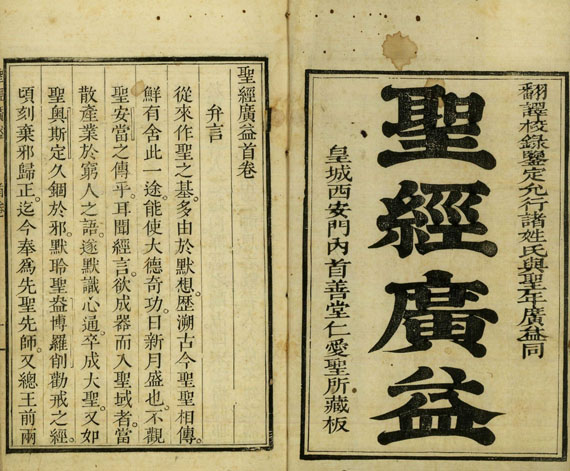 翻譯校錄鑒定允行諸姓氏與聖年廣益同
聖經廣益
皇城西安門內首善堂仁愛聖所藏板
聖經廣益首卷
弁言
從來作聖之基。多由於默想。歷溯古今聖聖相傳。
鮮有舍此一途。能使大德奇功。日新月盛也。不觀
聖安當之傳乎。耳聞經言。欲成器而入聖域者。當
散產業於窮人之語。遂默識心通。卒成大聖。又如
聖奧斯定久錮於邪。默聆聖盎博羅削勸戒之經。
頃刻棄邪歸正。迄今奉為先聖先師。又總王前兩